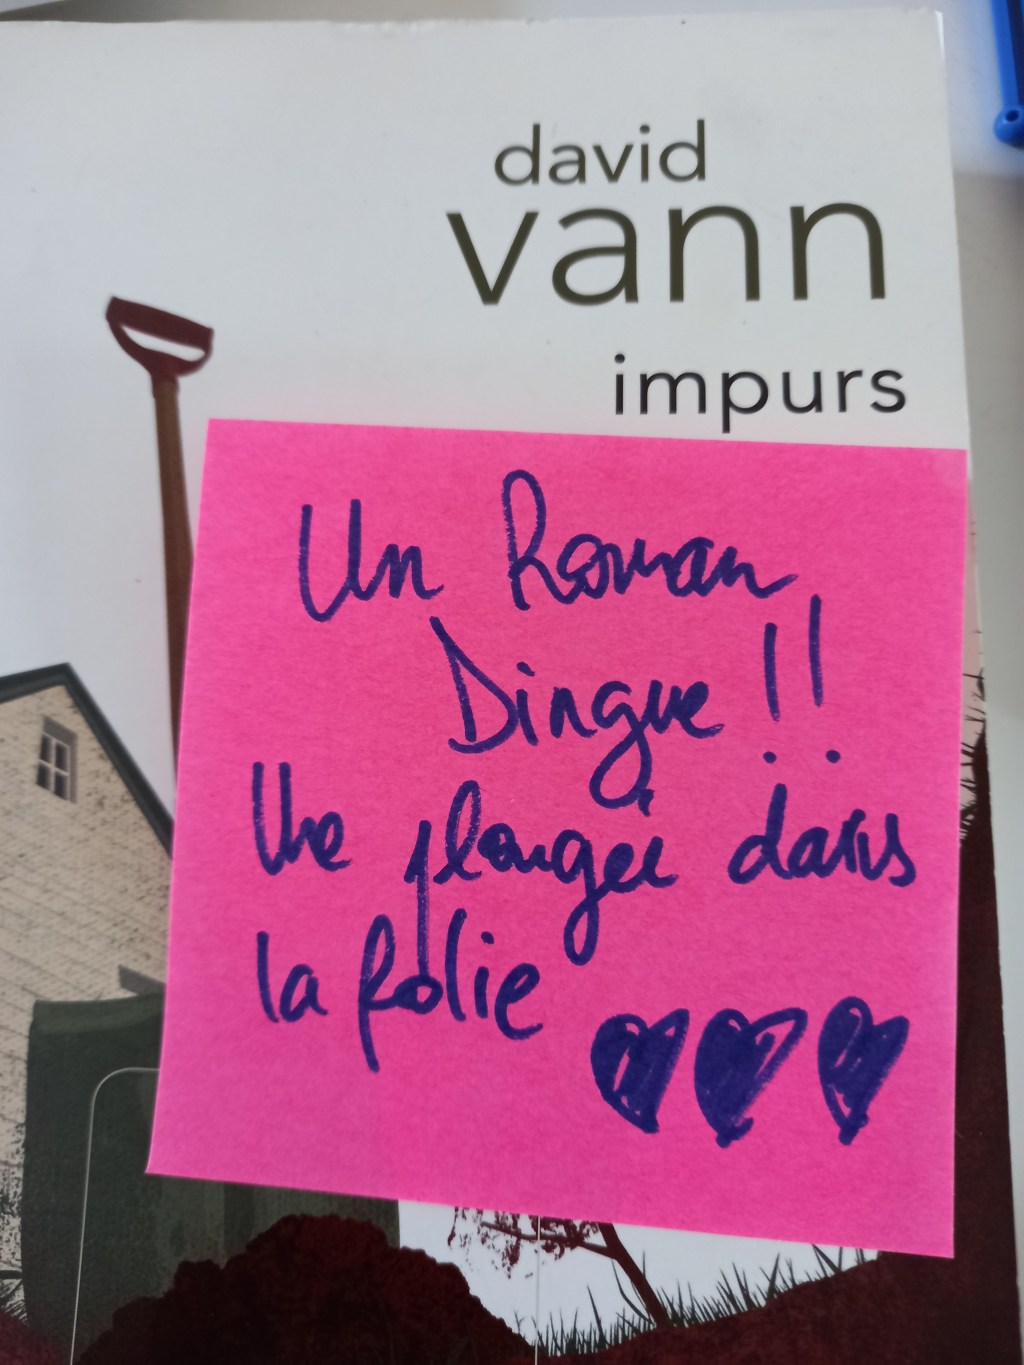 david
vann
impurs
Un Roman
Dingue !!
Une plongée dans
la folie